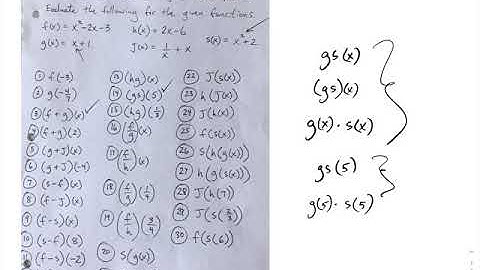 Evaluate the following for the given functions
f(x) = x²-2x-3 h(x) = 2x-6
g(x) = x+1 J(x) = 1/x + x s(x) = x²+2
① f(-3)
② g(-4/7)
③ (f+g)(x) ✓
④ (f+g)(2)
⑤ (g+J)(x)
⑥ (g+J)(-4)
⑦ (s-f)(x)
⑧ (f-J)(x)
⑨ (f-s)(x)
⑩ (s-f)(8)
⑪ (f-s)(-2)
⑬ (hg)(x)
⑭ (gs)(5) ✓
⑮ (hg)(1/3)
⑯ (f/g)(x)
⑰ (f/h)(x)
⑱ (f/g)(1/4)
⑲ (f/h)(3/4)
⑳ s(g(x))
㉒ J(s(x))
㉓ h(J(x))
㉔ J(h(x))
㉕ f(s(x))
㉖ s(h(g(x)))
㉗ h(g(s(x)))
㉘ J(h(7))
㉙ J(s(2/3))
㉚ f(s(6))
gs(x)
(gs)(x)
g(x) · s(x)
gs(5)
g(5) · s(5)